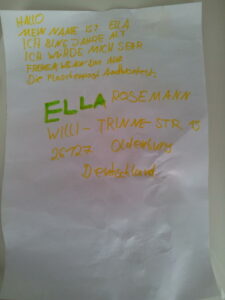 HALLO
MEIN NAME IST ELLA
ICH BIN 5 JAHRE ALT
ICH WÜRDE MICH SEHR
FREUEN WENN DU MIR
Die
ELLA ROSEMANN
WILLI-TRINNE-STR 15
26127 Oldenburg
Deutschland